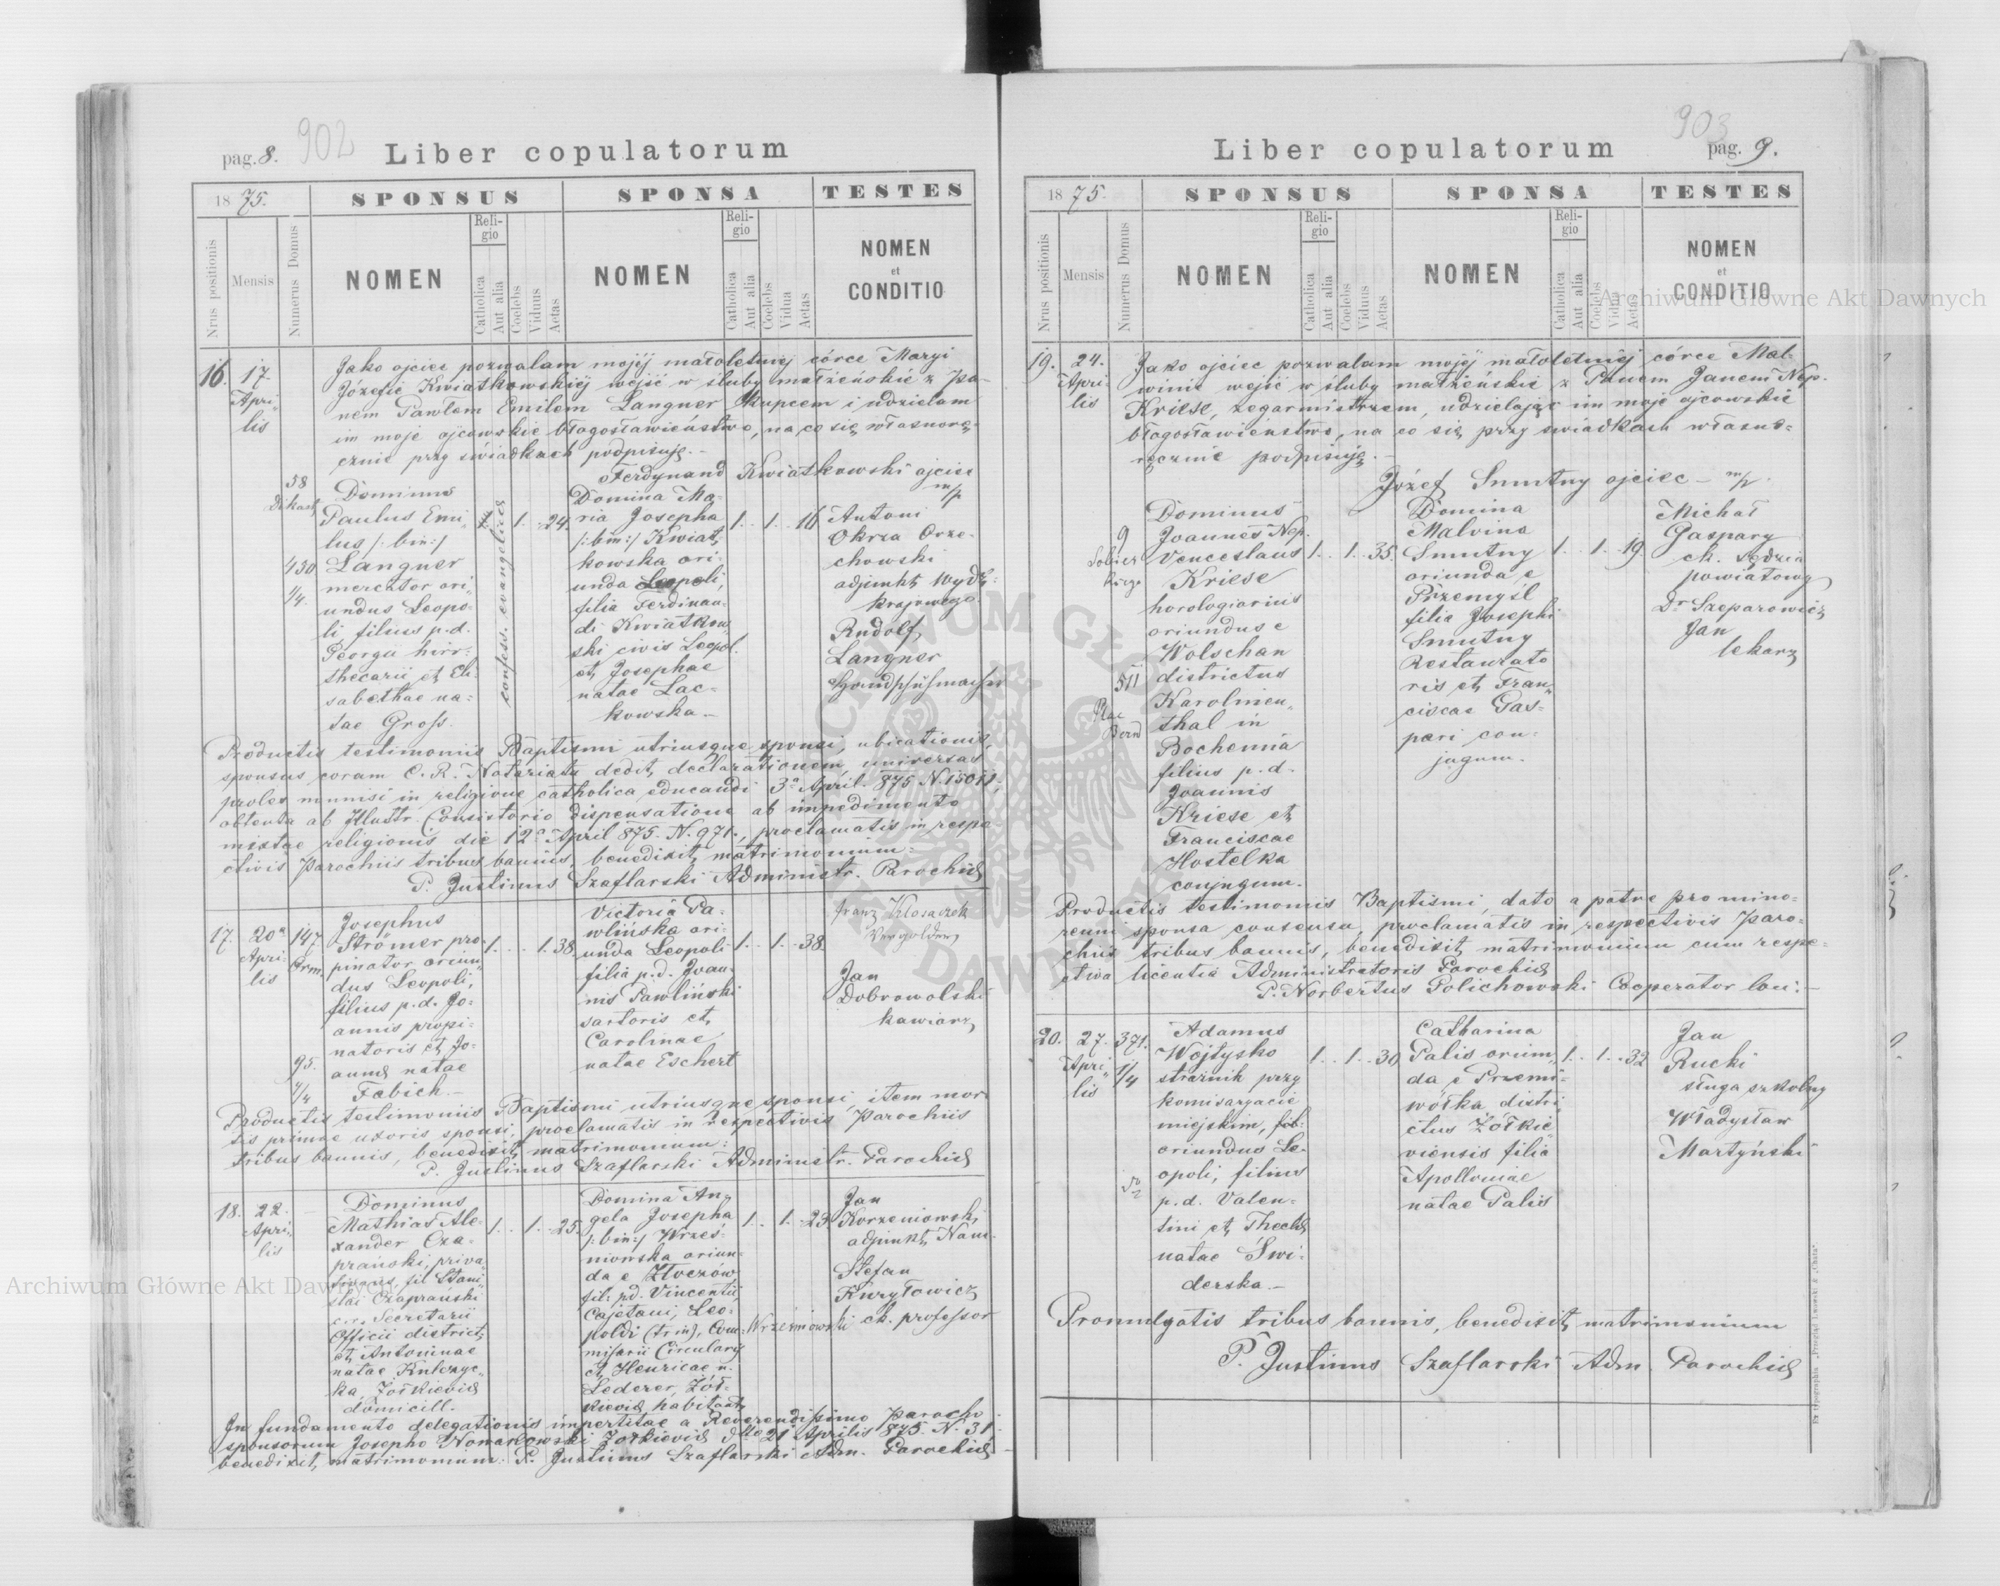 902
pag. 8.
Liber copulatorum
1875.
SPONSUS
SPONSA
TESTES
Nrus positionis
Mensis
Numerus Domus
NOMEN
Religio
Catholica
Aut alia
Coelebs
Viduus
Aetas
NOMEN
Religio
Catholica
Aut alia
Coelebs
Vidua
Aetas
NOMEN
et
CONDITIO
16.
17.
Apri-
lis
Jako ojciec pozwalam mojéj małoletniej córce Maryi
Józefie Kwiatkowskiéj wejść w śluby małżeńskié z Pa-
nem Pawłem Emilem Langner kupcem i udzielam
im moje ojcowskie błogosławieństwo, na co się własnorę-
cznie przy świadkach podpisuję.-
Ferdynand Kwiatkowski ojciec
m/p
38
430
2/4.
Dominus
Paulus Emi-
lus /: bin:/
Langner
mercator ori-
undus Leopo-
li, filius p.d.
Georgii
thecarii et Eli-
sabethae na-
tae Gross.
confess. evangelicae
1.
24.
Domina Ma-
ria Josepha
/: bin:/ Kwiat-
kowska ori-
unda Leopoli,
filia Ferdinan-
di Kwiatkow-
ski civis Leopol.
et Josephae
natae Lac-
kowska-
1.
1.
16
Antoni
Okrza Orze-
chowski
adjunkt Wydz.
krajowego.
Rudolf
Langner
Handschuhmacher
Productis testimoniis Baptismi utriusque sponsi, ubicationis,
sponsus coram C. R. Notariatu dedit declarationem, universas
proles in religione catholica educandi 3a April. 875 N.
obtenta ab Illustr. Consistorio dispensatione ab impedimento
mixtae religionis die 12a April 875. N. 971., proclamatis in respe-
ctivis Parochiis tribus bannis, benedixit matrimonium:
P. Justinus Szaflarski Administr. Parochiae
17.
20a
Apri-
lis
147
Orm.
95.
4/4
Josephus
Strömer pro-
pinator oriun-
dus Leopoli,
filius p.d. Jo-
annis propi-
natoris et Jo-
annae natae
Fabich.-
1.
1.
38.
Victoria Pa-
wlińska ori-
unda Leopoli
filia p.d. Joan-
nis Pawliński
sartoris et
Carolinae
natae Eschert
1.
1.
38.
Franz Klosaczek
Vergolder
Jan
Dobrowolski
kawiarz
Productis testimoniis Baptismi utriusque sponsi, item mor-
tis primae uxoris sponsi, proclamatis in respectivis Parochiis
tribus bannis, benedixit matrimonium:
P. Justinus Szaflarski Administr. Parochiae
18.
22.
Apri-
lis
Dominus
Mathias Ale-
xander Cza-
prański, priva-
tivans, fil. Stani-
slai Czaprański
c.r. Secretarii
Officii district,
et Antoninae
natae Kulczyc-
ka, Żołkieviae
domicill.
1.
1.
25.
Domina An-
gela Josepha
/: bin:/ Wrześ-
niowska oriun-
da e Złoczów
fil. p.d. Vincentii,
Cajetani, Leo-
poldi (trin), Com: Wrześniowski
missarii Circulary
et Henricae n.
Lederer, Żół-
kieviae habitant.
1.
1.
23
Jan
Korzeniowski
adjunkt Nam.
Stefan
Kuryłowicz
ck. professor
In fundamento delegationis impertitae a Reverendissimo Parocho
sponsorum Josepho Nowakowski Żołkieviae ddto 21 Aprilis 875. N. 31.
benedixit matrimonium: P. Justinus Szaflarski Adm. Parochiae
903
pag. 9.
Liber copulatorum
1875.
SPONSUS
SPONSA
TESTES
Nrus positionis
Mensis
Numerus Domus
NOMEN
Religio
Catholica
Aut alia
Coelebs
Viduus
Aetas
NOMEN
Religio
Catholica
Aut alia
Coelebs
Vidua
Aetas
NOMEN
et
CONDITIO
19.
24.
Apri-
lis
Jako ojciec pozwalam mojéj małoletniéj córce Mal-
winie wejść w śluby małżeńskie z Panem Janem Nep.
Kriese, zegarmistrzem, udzielając im moje ojcowskie
błogosławieństwo, na co się przy świadkach własno-
ręcznie podpisuję.-
Józef Smutny ojciec - m/p.
9
511
Plac
Bern
Dominus
Joannes Nep.
Venceslaus
Kriese
horologiarius
oriundus e
Wolschan
districtus
Karolinen-
thal in
Bochemia
filius p.d.
Joannis
Kriese et
Franciscae
Hostelka
conjugum.
1.
1.
35.
Domina
Malvina
Smutny
oriunda e
Przemyśl
filia Josephi
Smutny
Restaurato
ris et Fran-
ciscae Gas-
pari con-
jugum.
1.
1.
19.
Michał
Gaspary
ck. sędzia
powiatowy
Dr Szeparowicz
Jan
lekarz
Productis testimoniis Baptismi, dato a patre pro mino-
renni sponsa consensu, proclamatis in respectivis Paro-
chiis tribus bannis, benedixit matrimonium cum respe-
ctiva licentia Administratoris Parochiae
P. Norbertus Golichowski Cooperator loci.-
20.
27.
Apri-
lis
371.
1/4
Adamus
Wojtysko
strażnik przy
komisaryacie
miejskim,
oriundus Le-
opoli, filius
p.d. Valen-
tini et Theclae
natae Świ-
derska.-
1.
1.
30
Catharina
Palis oriun-
da e Przemi-
wółka distri-
ctus Żółkie-
viensis filia
Apolloniae
natae Palis
1.
1.
32
Jan
Rucki
sługa szkolny
Władysław
Martyński
Promulgatis tribus bannis, benedixit matrimonium
P. Justinus Szaflarski Adm. Parochiae
Archiwum Główne Akt Dawnych
Archiwum Główne Akt Dawnych
ARCHIWUM GŁÓWNE AKT DAWNYCH